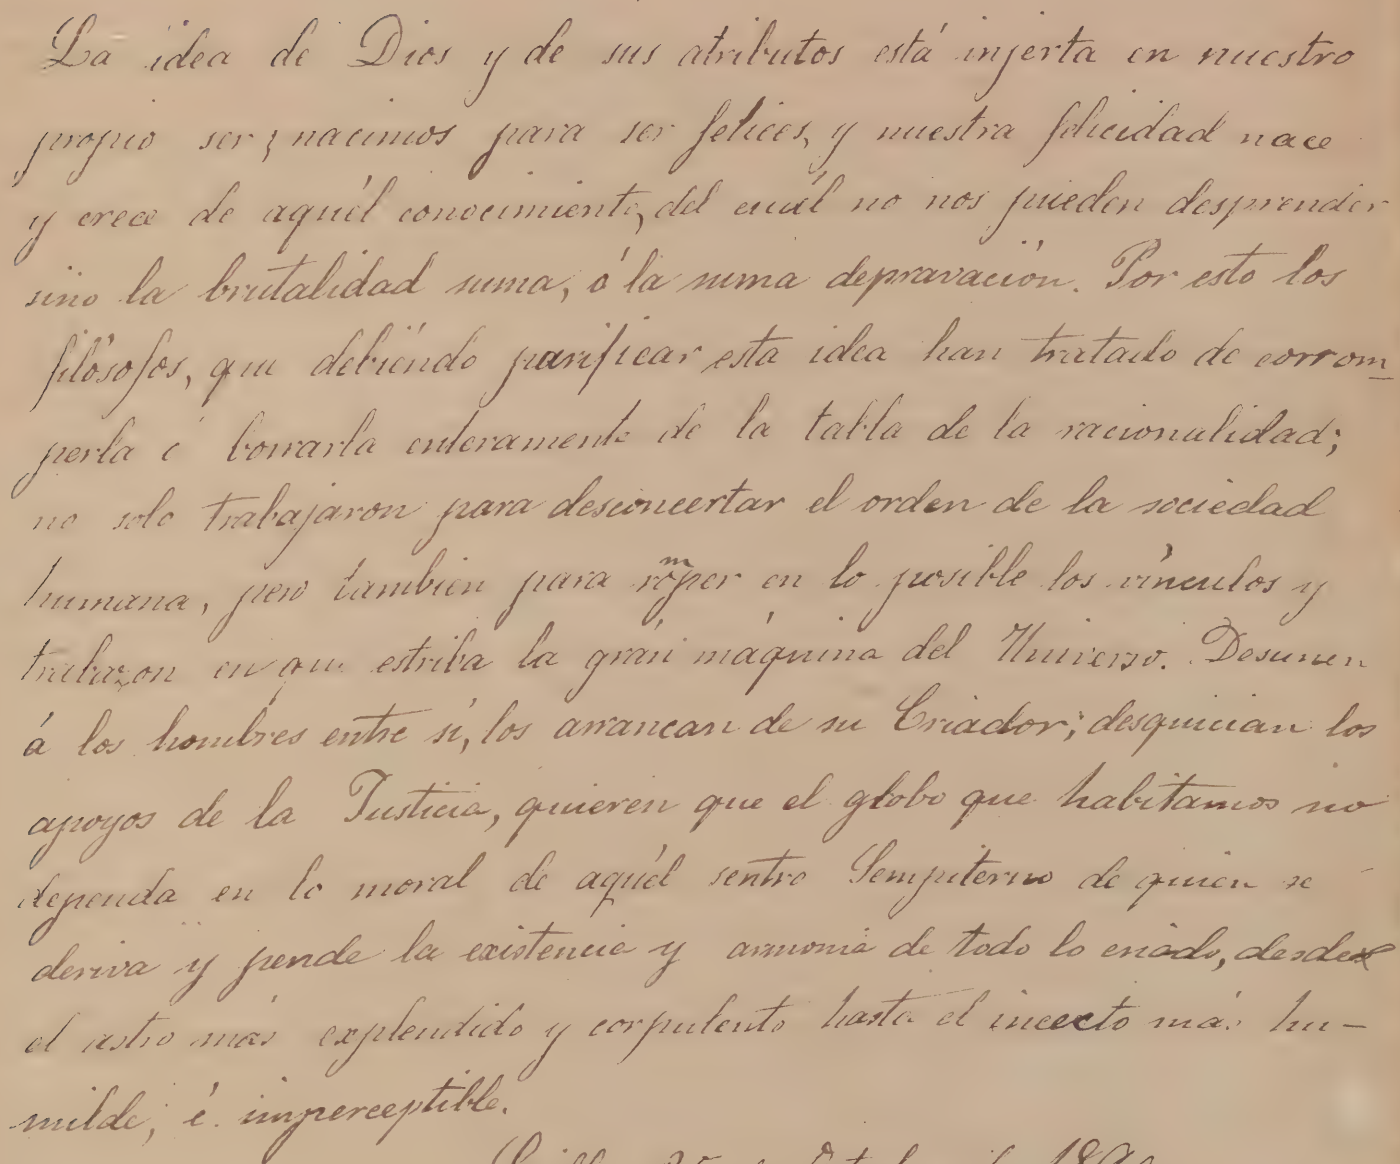 La idea de Dios y de sus atributos está injerta en nuestro
propio ser; nacimos para ser felices, y nuestra felicidad nace
y crece de aquél conocimiento, del cuál no nos pueden desprender
sino la brutalidad suma, ó la suma depravación. Por esto los
filósofos, que debiéndo purificar esta idea han tratado de corrom-
perla é borrarla enteramente de la tabla de la racionalidad;
no solo trabajaron para desconcertar el orden de la sociedad
humana, pero tambien para romper en lo posible los vínculos y
trabazon en que estriba la grán máquina del Universo. Desunen
á los hombres entre sí, los arrancan de su Criador; desquician los
apoyos de la Justicia, quieren que el globo que habitamos no
dependa en lo moral de aquél sentro Sempiterno de quien se
deriva y pende la existencia y armonia de todo lo criado, desde
el astro más explendido y corpulento hasta el incecto más hu-
milde, é imperceptible.
de 189